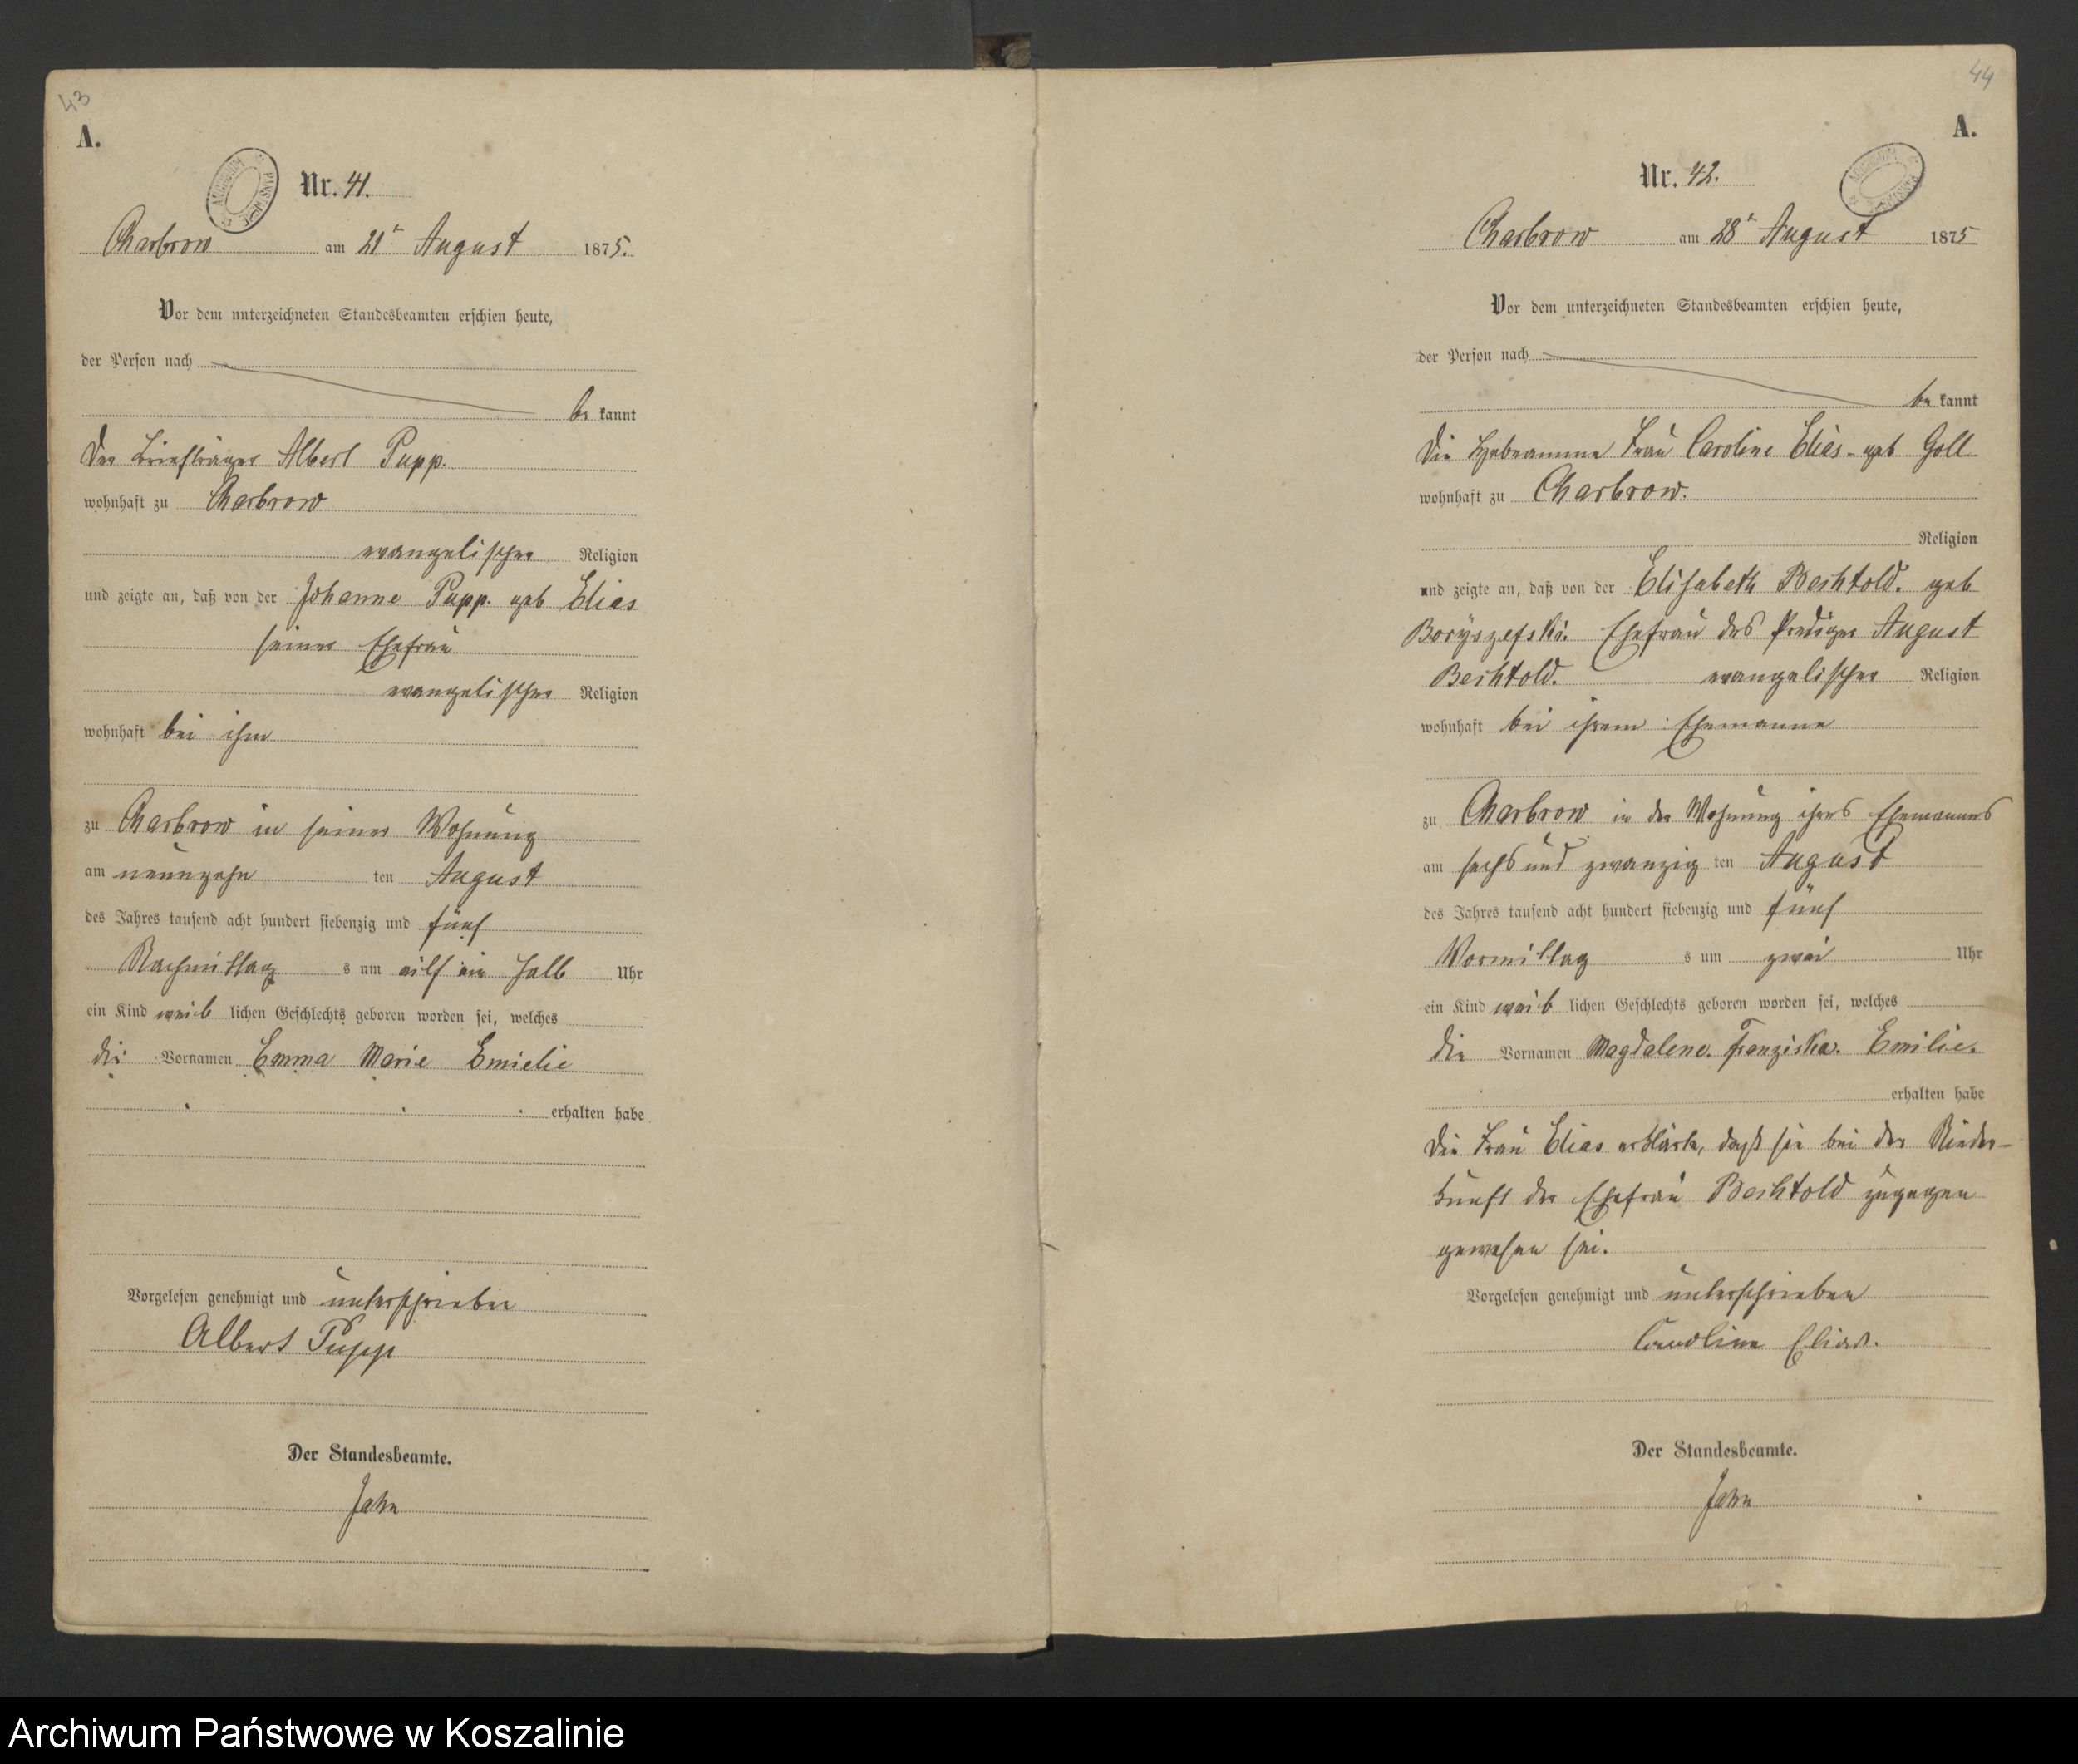 43
A.
Nr. 41.
Charbrow am 21ᵗ August 1875.
Vor dem unterzeichneten Standesbeamten erschien heute,
der Person nach
be kannt
Der Briefträger Albert Pupp.
wohnhaft zu Charbrow
evangelischer Religion
und zeigte an, daß von der Johanne Pupp. geb Elias
seiner Ehefrau
evangelischer Religion
wohnhaft bei ihm
zu Charbrow in seiner Wohnung
am neunzehn ten August
des Jahres tausend acht hundert siebenzig und fünf
Nachmittag s um eilf ein halb Uhr
ein Kind weib lichen Geschlechts geboren worden sei, welches
die Vornamen Emma Marie Emielie
erhalten habe
Vorgelesen genehmigt und unterschrieben
Albert Pupp
Der Standesbeamte.
Jahn
44
A.
Nr. 42.
Charbrow am 28ᵗ August 1875
Vor dem unterzeichneten Standesbeamten erschien heute,
der Person nach
be kannt
Die Hebeamme Frau Caroline Elias. geb Goll
wohnhaft zu Charbrow.
Religion
und zeigte an, daß von der Elisabeth Bechtold. geb
Boryszefski. Ehefrau des Prediger August
Bechtold. evangelischer Religion
wohnhaft bei ihrem Ehemanne
zu Charbrow in der Wohnung ihres Ehemannes
am sechs und zwanzig ten August
des Jahres tausend acht hundert siebenzig und fünf
Vormittag s um zwei Uhr
ein Kind weib lichen Geschlechts geboren worden sei, welches
die Vornamen Magdalene. Franziska. Emilie.
erhalten habe
Die Frau Elias erklärte, daß sie bei der Nieder-
kunft der Ehefrau Bechtold zugegen
gewesen sei.
Vorgelesen genehmigt und unterschrieben
Caroline Elias.
Der Standesbeamte.
Jahn
Archiwum Państwowe w Koszalinie